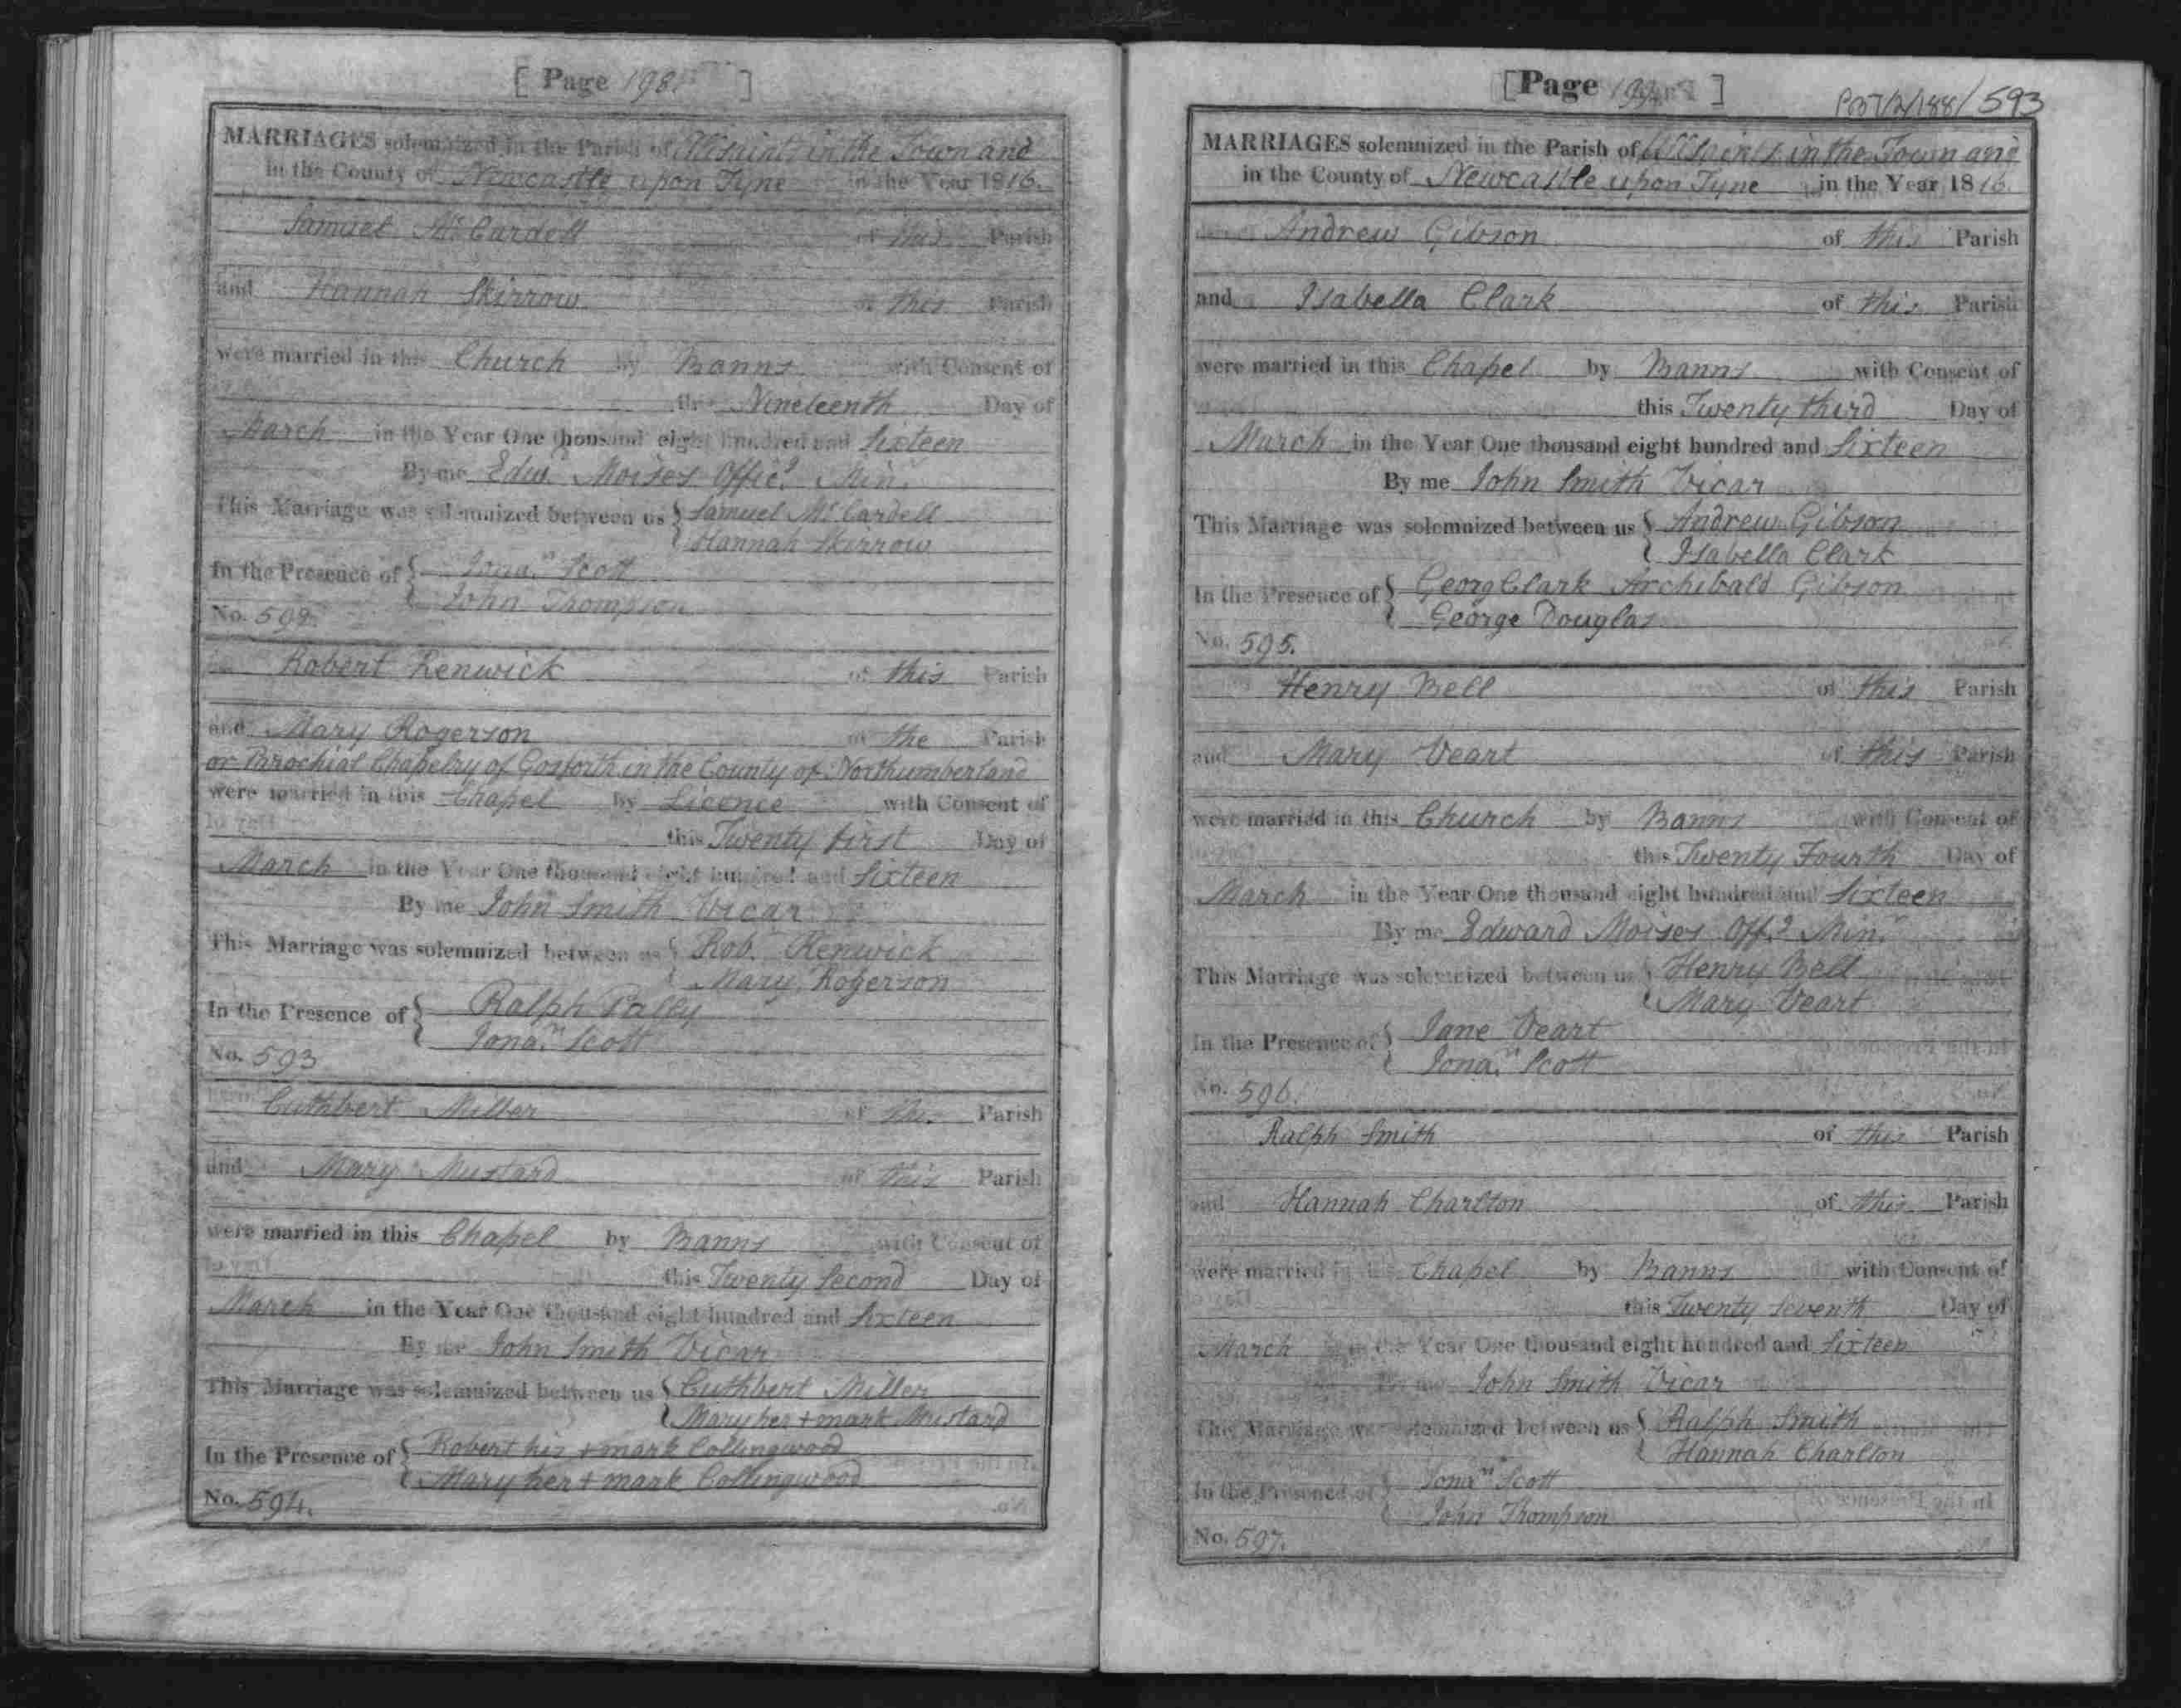 [ Page 198. ]
MARRIAGES solemnized in the Parish of All Saints in the Town and
in the County of Newcastle upon Tyne in the Year 1816.
Samuel Mc Cardell of this Parish
and Hannah Skirrow of this Parish
were married in this Church by Banns with Consent of
this Nineteenth Day of
March in the Year One thousand eight hundred and Sixteen
By me Edwd Moises Officg Minr
This Marriage was solemnized between us { Samuel Mc Cardell
Hannah Skirrow
In the Presence of { Jonan Scott
John Thompson
No. 592.
Robert Renwick of this Parish
and Mary Rogerson of the Parish
or Parochial Chapelry of Gosforth in the County of Northumberland
were married in this Chapel by Licence with Consent of
this Twenty first Day of
March in the Year One thousand eight hundred and Sixteen
By me John Smith Vicar
This Marriage was solemnized between us { Rob. Renwick
Mary Rogerson
In the Presence of { Ralph
Jonan Scott
No. 593
Cuthbert Miller of this Parish
and Mary Mustard of this Parish
were married in this Chapel by Banns with Consent of
this Twenty Second Day of
March in the Year One thousand eight hundred and Sixteen
By me John Smith Vicar
This Marriage was solemnized between us { Cuthbert Miller
Mary her + mark Mustard
In the Presence of { Robert his + mark Collingwood
Mary her + mark Collingwood
No. 594.
[ Page 199. ]
593
MARRIAGES solemnized in the Parish of All Saints in the Town and
in the County of Newcastle upon Tyne in the Year 1816.
Andrew Gibson of this Parish
and Isabella Clark of this Parish
were married in this Chapel by Banns with Consent of
this Twenty third Day of
March in the Year One thousand eight hundred and Sixteen
By me John Smith Vicar
This Marriage was solemnized between us { Andrew Gibson
Isabella Clark
In the Presence of { Georg Clark Archibald Gibson
George Douglas
No. 595.
Henry Bell of this Parish
and Mary Veart of this Parish
were married in this Church by Banns with Consent of
this Twenty Fourth Day of
March in the Year One thousand eight hundred and Sixteen
By me Edward Moises Offg Minr
This Marriage was solemnized between us { Henry Bell
Mary Veart
In the Presence of { Jane Veart
Jonan Scott
No. 596.
Ralph Smith of this Parish
and Hannah Charlton of this Parish
were married in this Chapel by Banns with Consent of
this Twenty Seventh Day of
March in the Year One thousand eight hundred and Sixteen
By me John Smith Vicar
This Marriage was solemnized between us { Ralph Smith
Hannah Charlton
In the Presence of { Jonan Scott
John Thompson
No. 597.